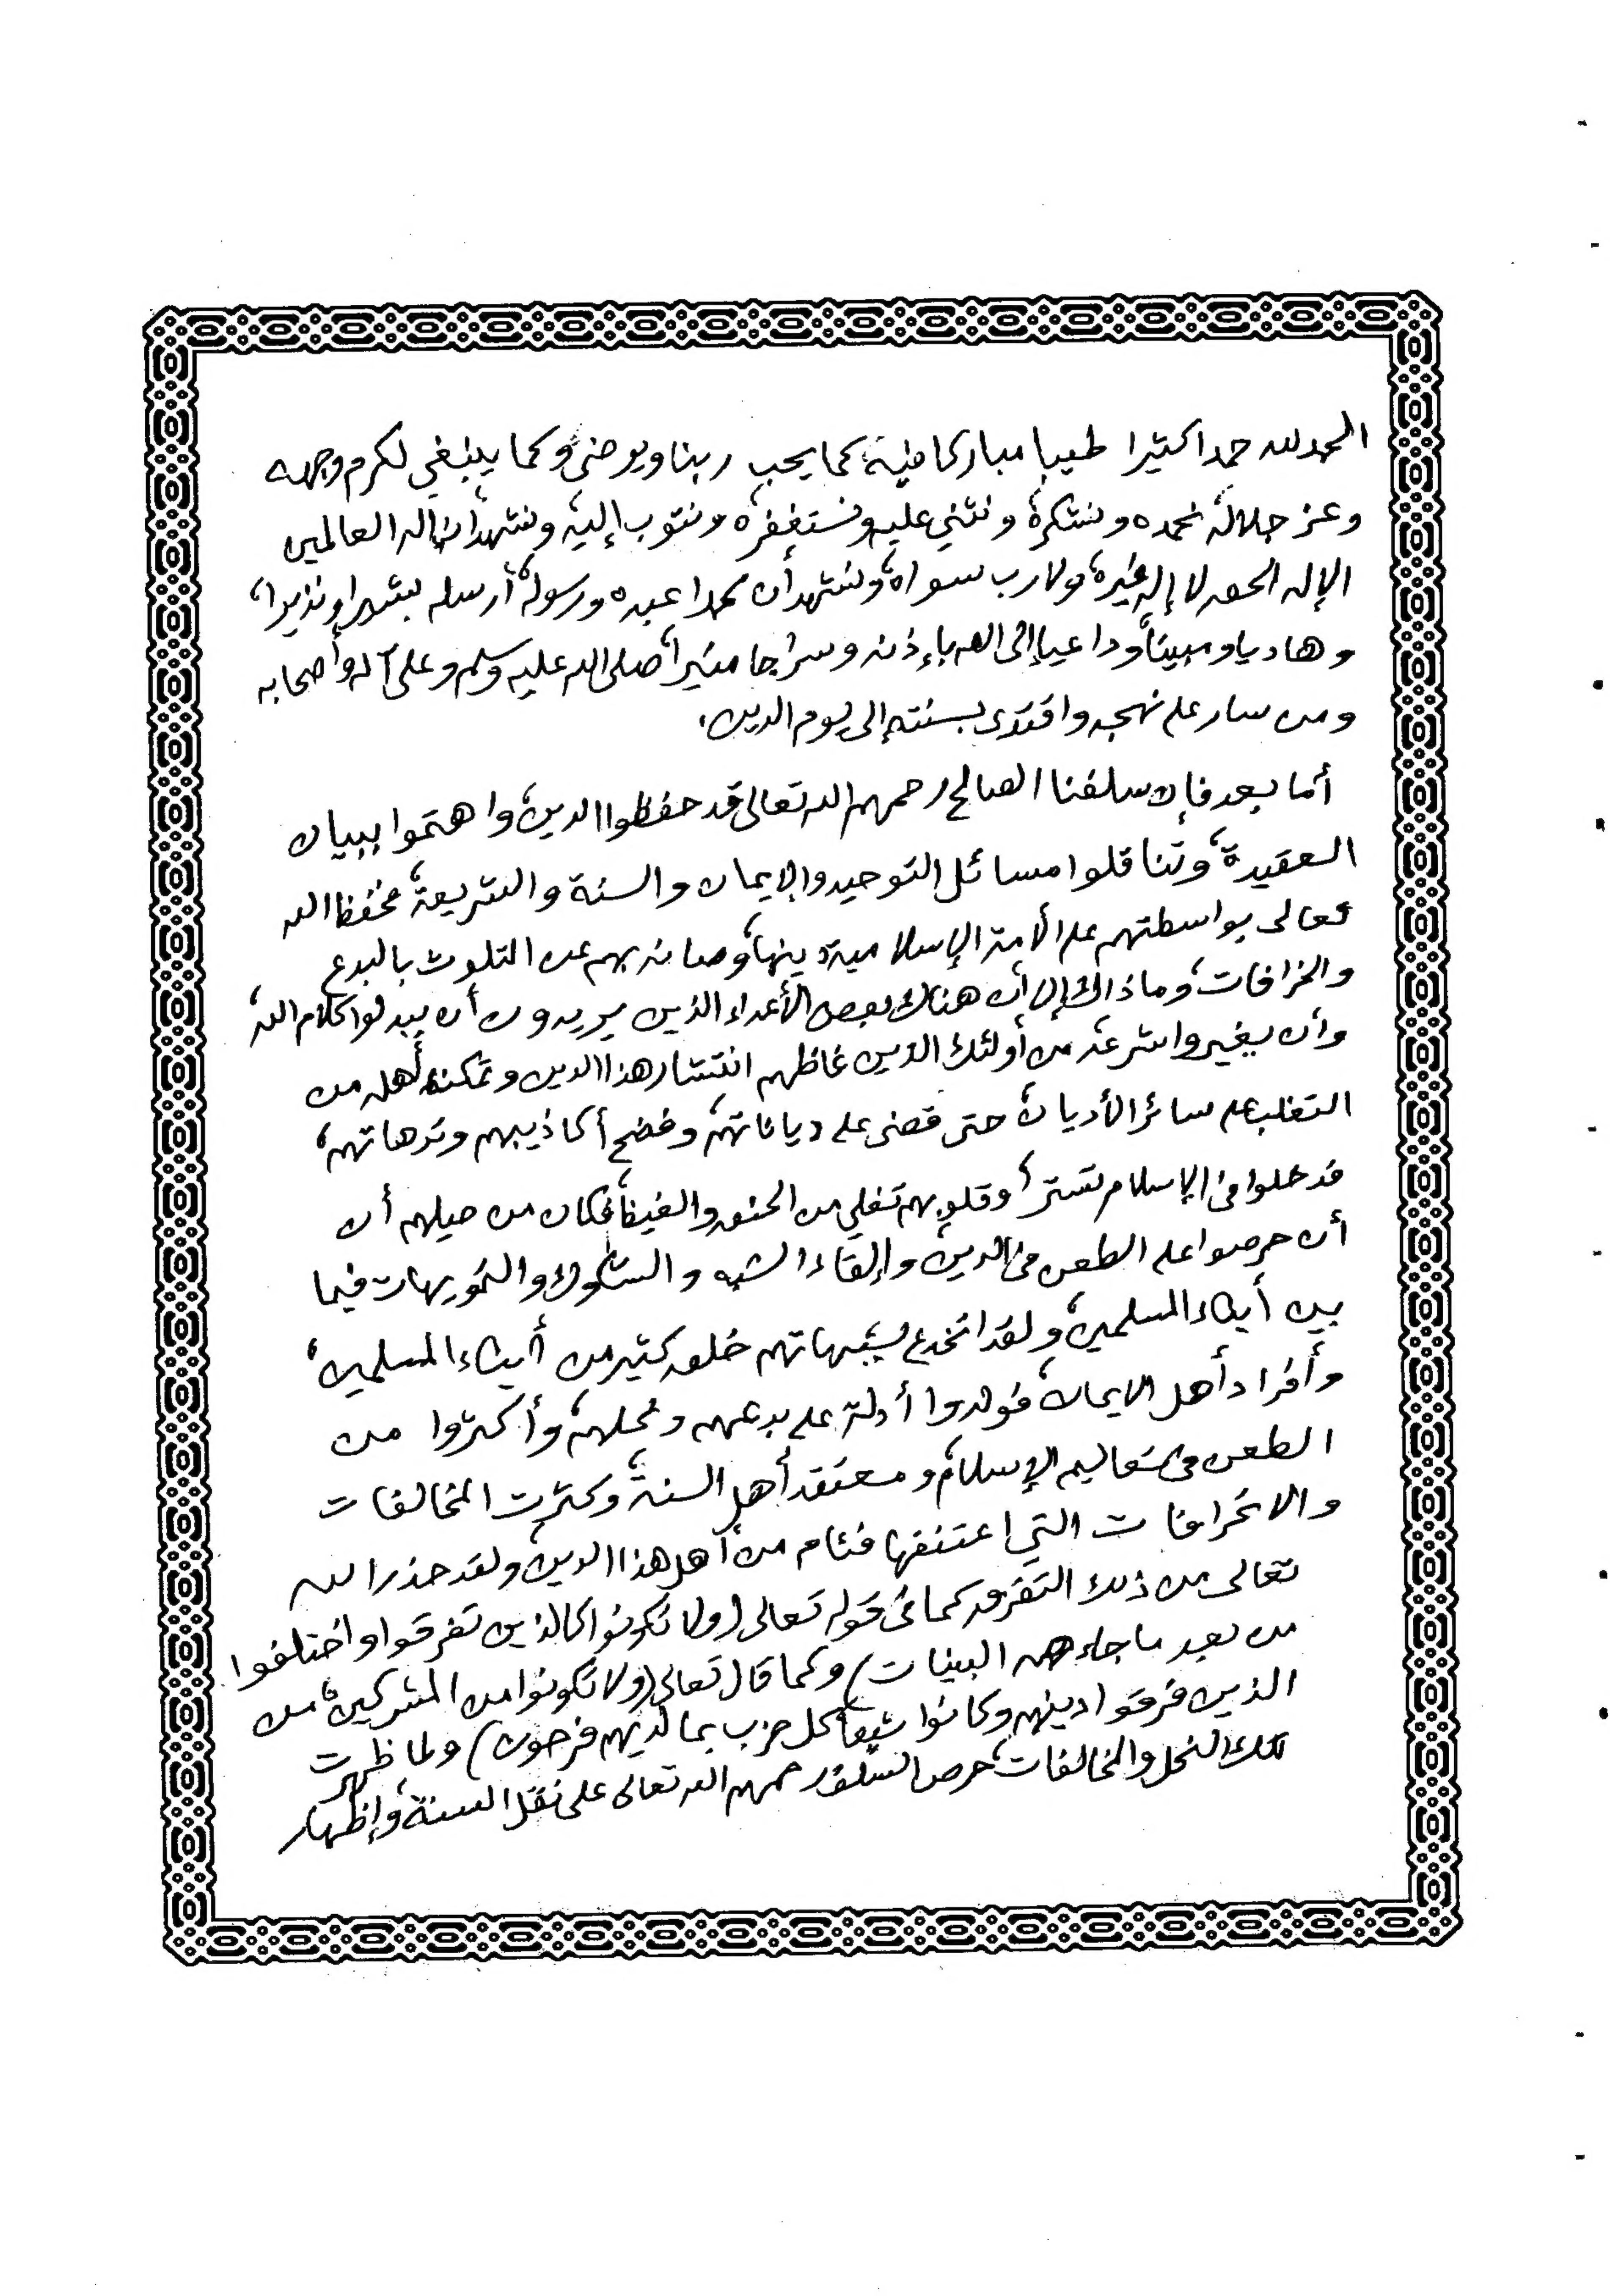 الحمد لله حمدا كثيرا طيبا مباركا فيه، كما يحب ربنا ويرضى، وكما ينبغي لكرم وجهه
وعز جلاله، نحمده ونشكره، ونثني عليه ونستغفره ونتوب إليه، ونشهد أنه إله العالمين
الإله الحق لا إله غيره، ولا رب سواه، ونشهد أن محمدا عبده ورسوله، أرسله بشيرا ونذيرا،
وهاديا ومبيناً، وداعيا إلى الله بإذنه وسراجا منيرا، صلى الله عليه وسلم وعلى آله وأصحابه
ومن سار على نهجه واقتدى بسنته إلى يوم الدين.
أما بعد فإن سلفنا الصالح رحمهم الله تعالى قد حفظوا الدين، واهتموا ببيان
العقيدة، وتناقلوا مسائل التوحيد والإيمان والسنة والشريعة، فحفظ الله
تعالى بواسطتهم على الأمة الإسلامية دينها، وصانه بهم عن التلوث بالبدع
والخرافات، وما ذاك إلا أن هناك بعض الأعداء الذين يريدون أن يبدلوا كلام الله،
وأن يغيروا شرعه من أولئك الذين غاظهم انتشار هذا الدين وتمكنه أهله من
التغلب على سائر الأديان، حتى قضى على دياناتهم، وفضح أكاذيبهم وترهاتهم،
فدخلوا في الإسلام تستراً، وقلوبهم تغلي من الحنق والغيظ، فكان من حيلهم أن
أن حرصوا على الطعن في الدين، وإلقاء الشبه والشكوك والتمويهات فيما
بين أبناء المسلمين، ولقد انخدع بشبهاتهم خلق كثير من أبناء المسلمين،
وأفراد أهل الايمان، فولدوا أدلة على بدعهم ونحلهم، وأكثروا من
الطعن في تعاليم الإسلام، ومعتقد أهل السنة، وكثرت المخالفات
والانحرافات التي اعتنقها فئام من أهل هذا الدين، ولقد حذر الله
تعالى من ذلك التفرق كما في قوله تعالى (ولا تكونوا كالذين تفرقوا واختلفوا
من بعد ما جاءهم البينات) وكما قال تعالى (ولا تكونوا من المشركين، من
الذين فرقوا دينهم وكانوا شيعاً كل حزب بما لديهم فرحون) ولما ظهرت
تلك النحل والمخالفات، حرص السلف رحمهم الله تعالى على نقل السنة، وإظهار